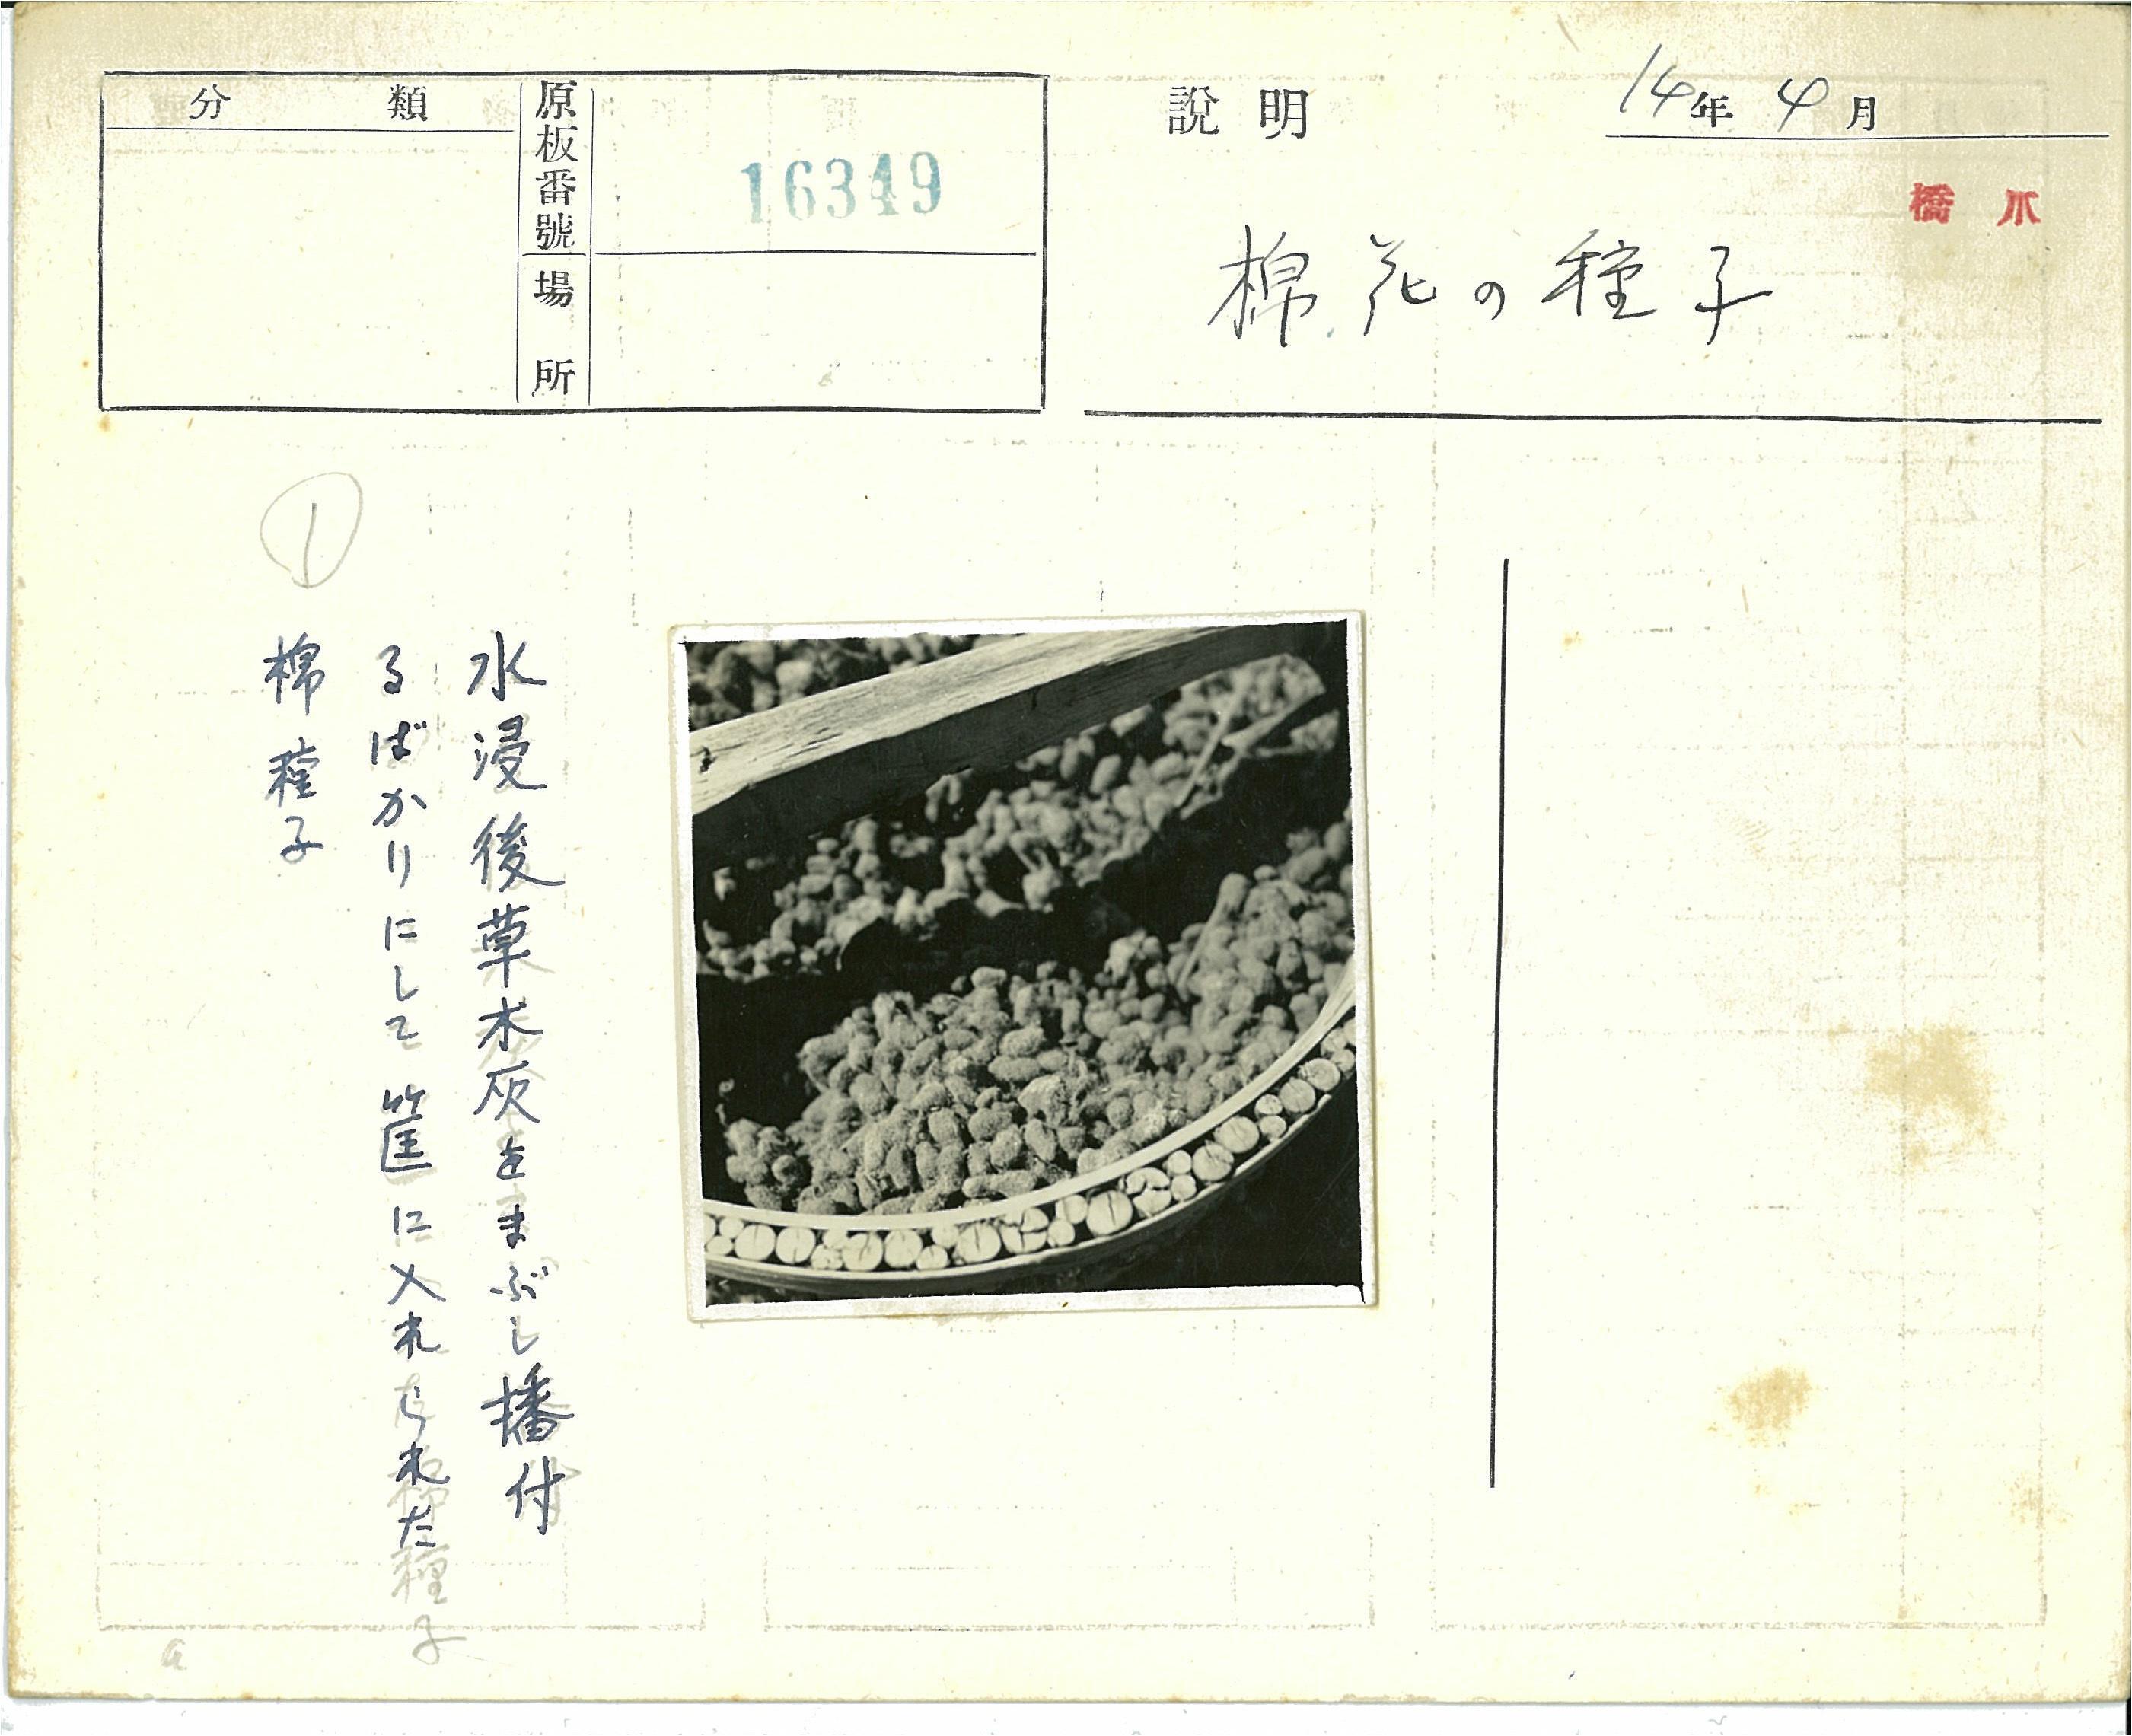 分類
原板番號
16349
場所
説明
14年4月
橋爪
棉花の種子
①
水浸後草木灰をまぶし播付
るばかりにして筐に入れられた
棉種子
棉種子
a